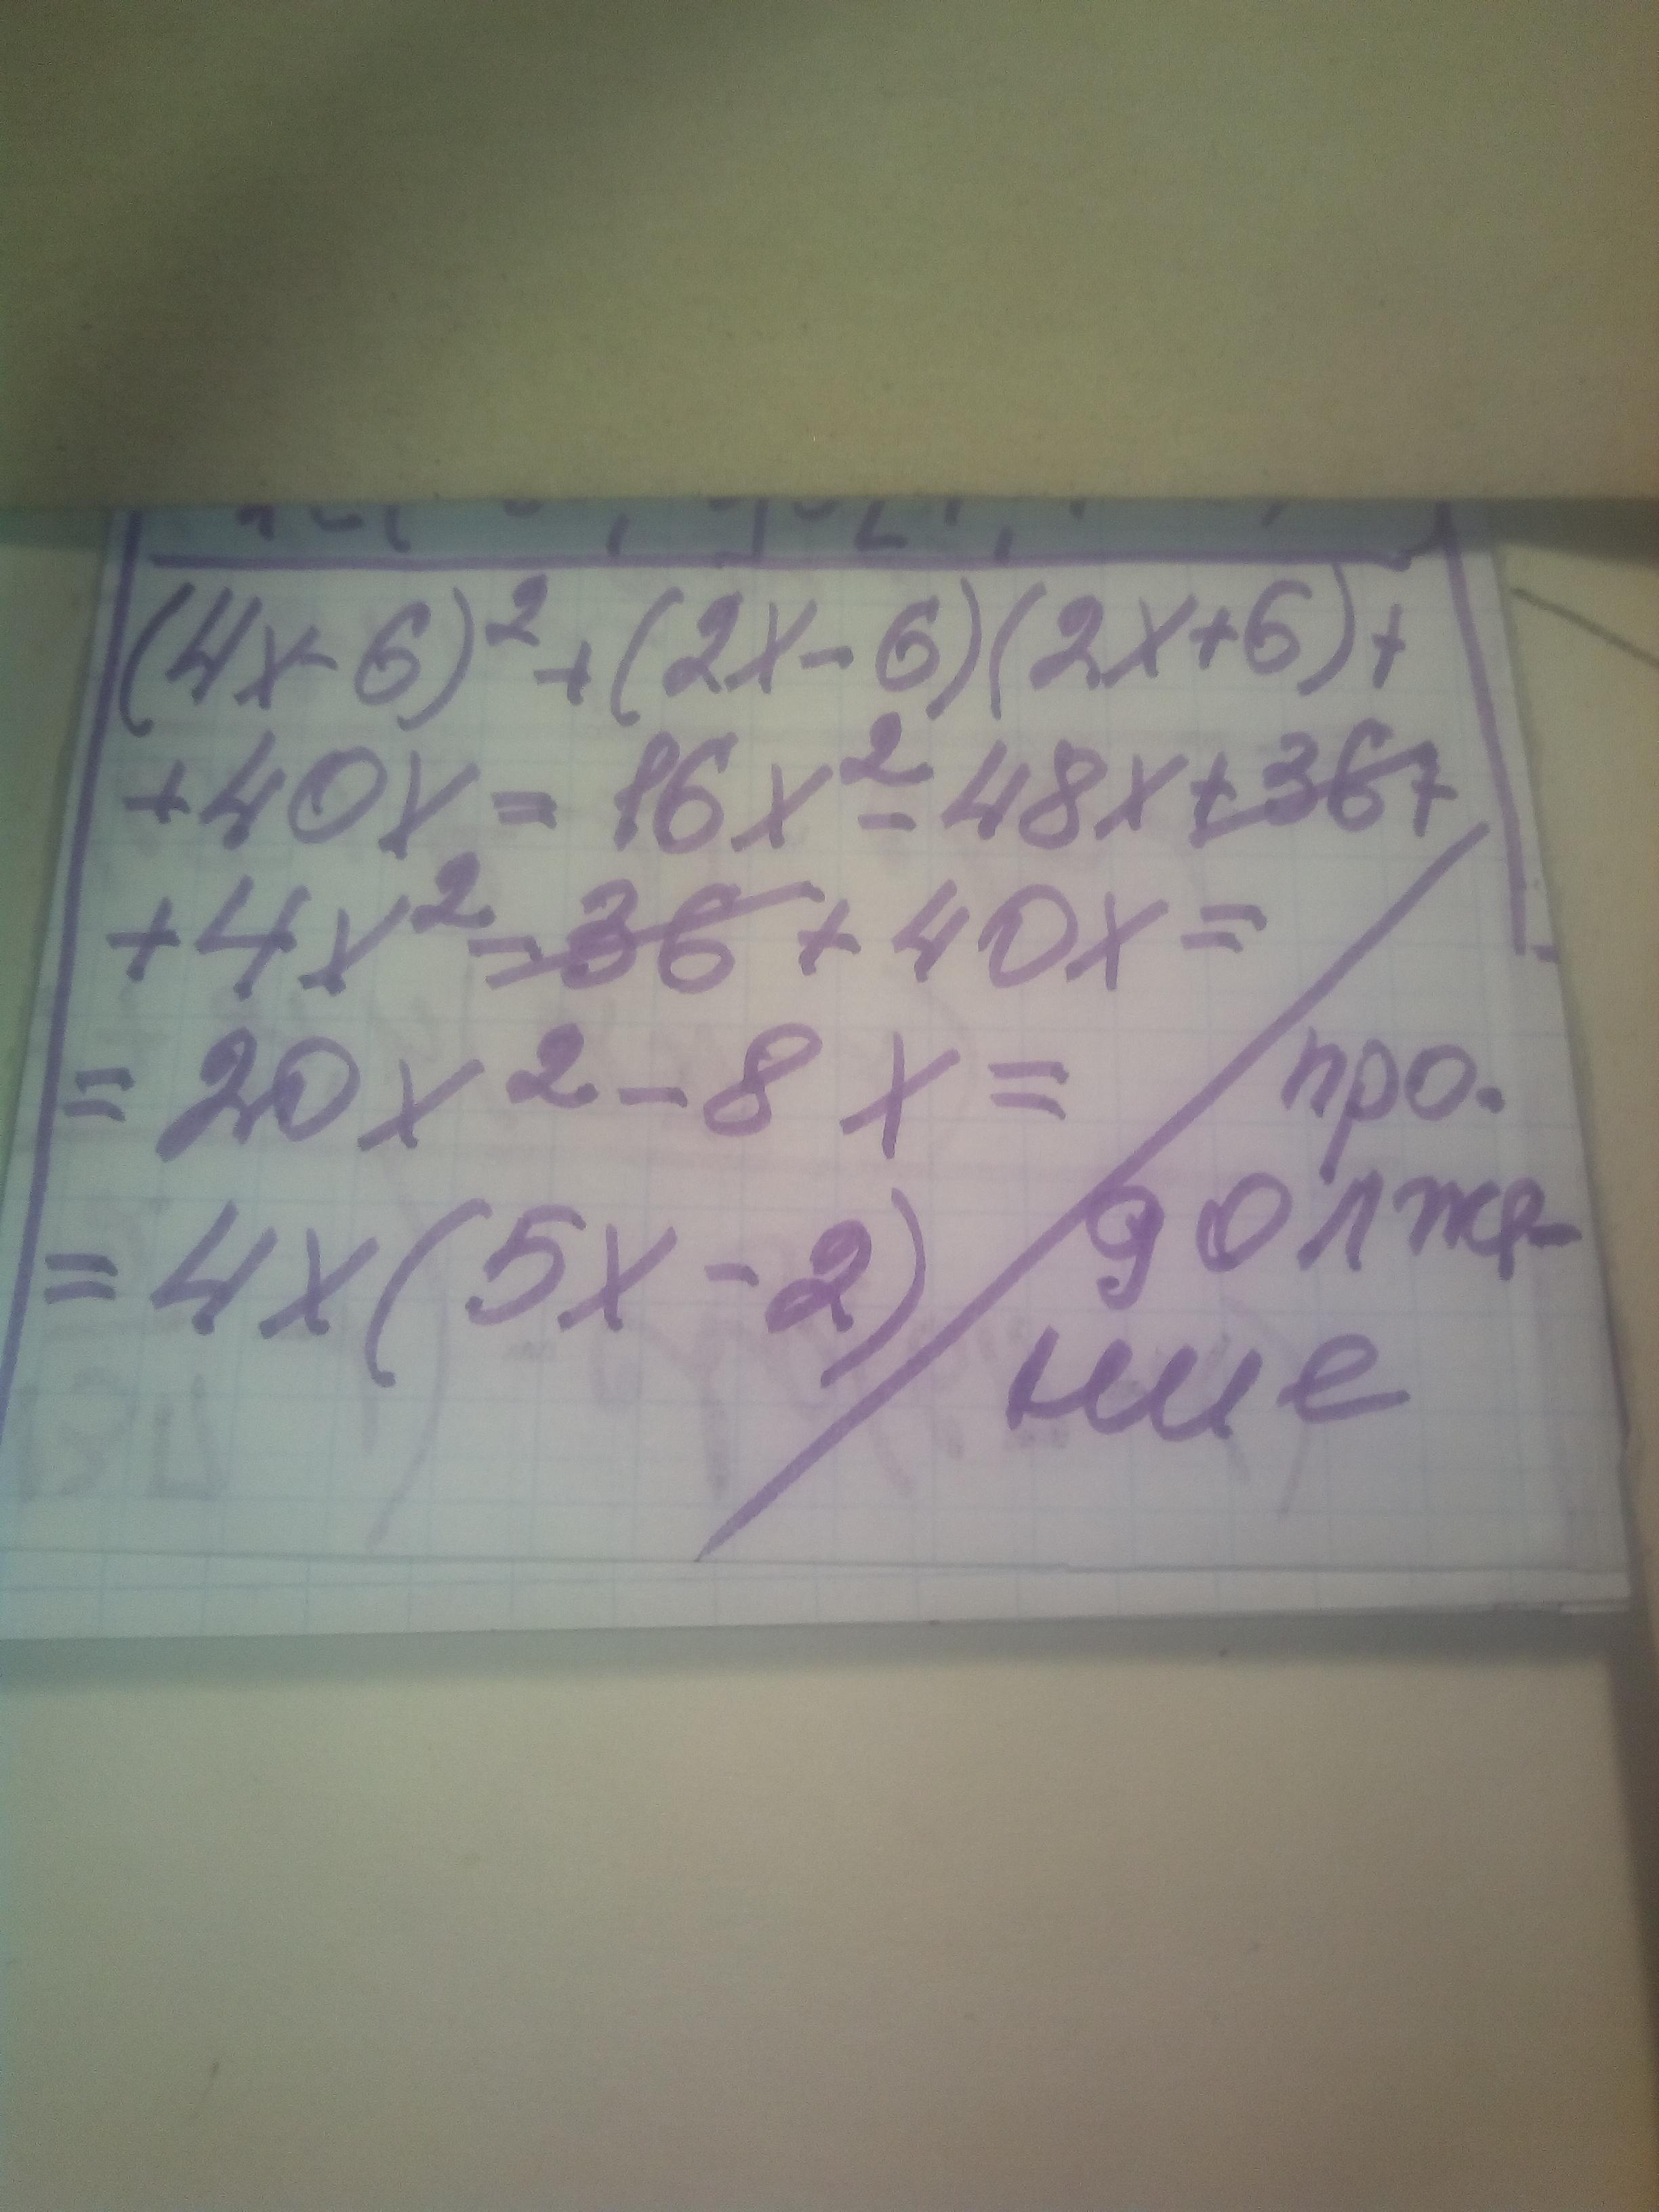 (4x-6)²+(2x-6)(2x+6)+
+40x=16x²-48x+36+
+4x²-36+40x=
=20x²-8x=
=4x(5x-2)
про.
долже-
ние